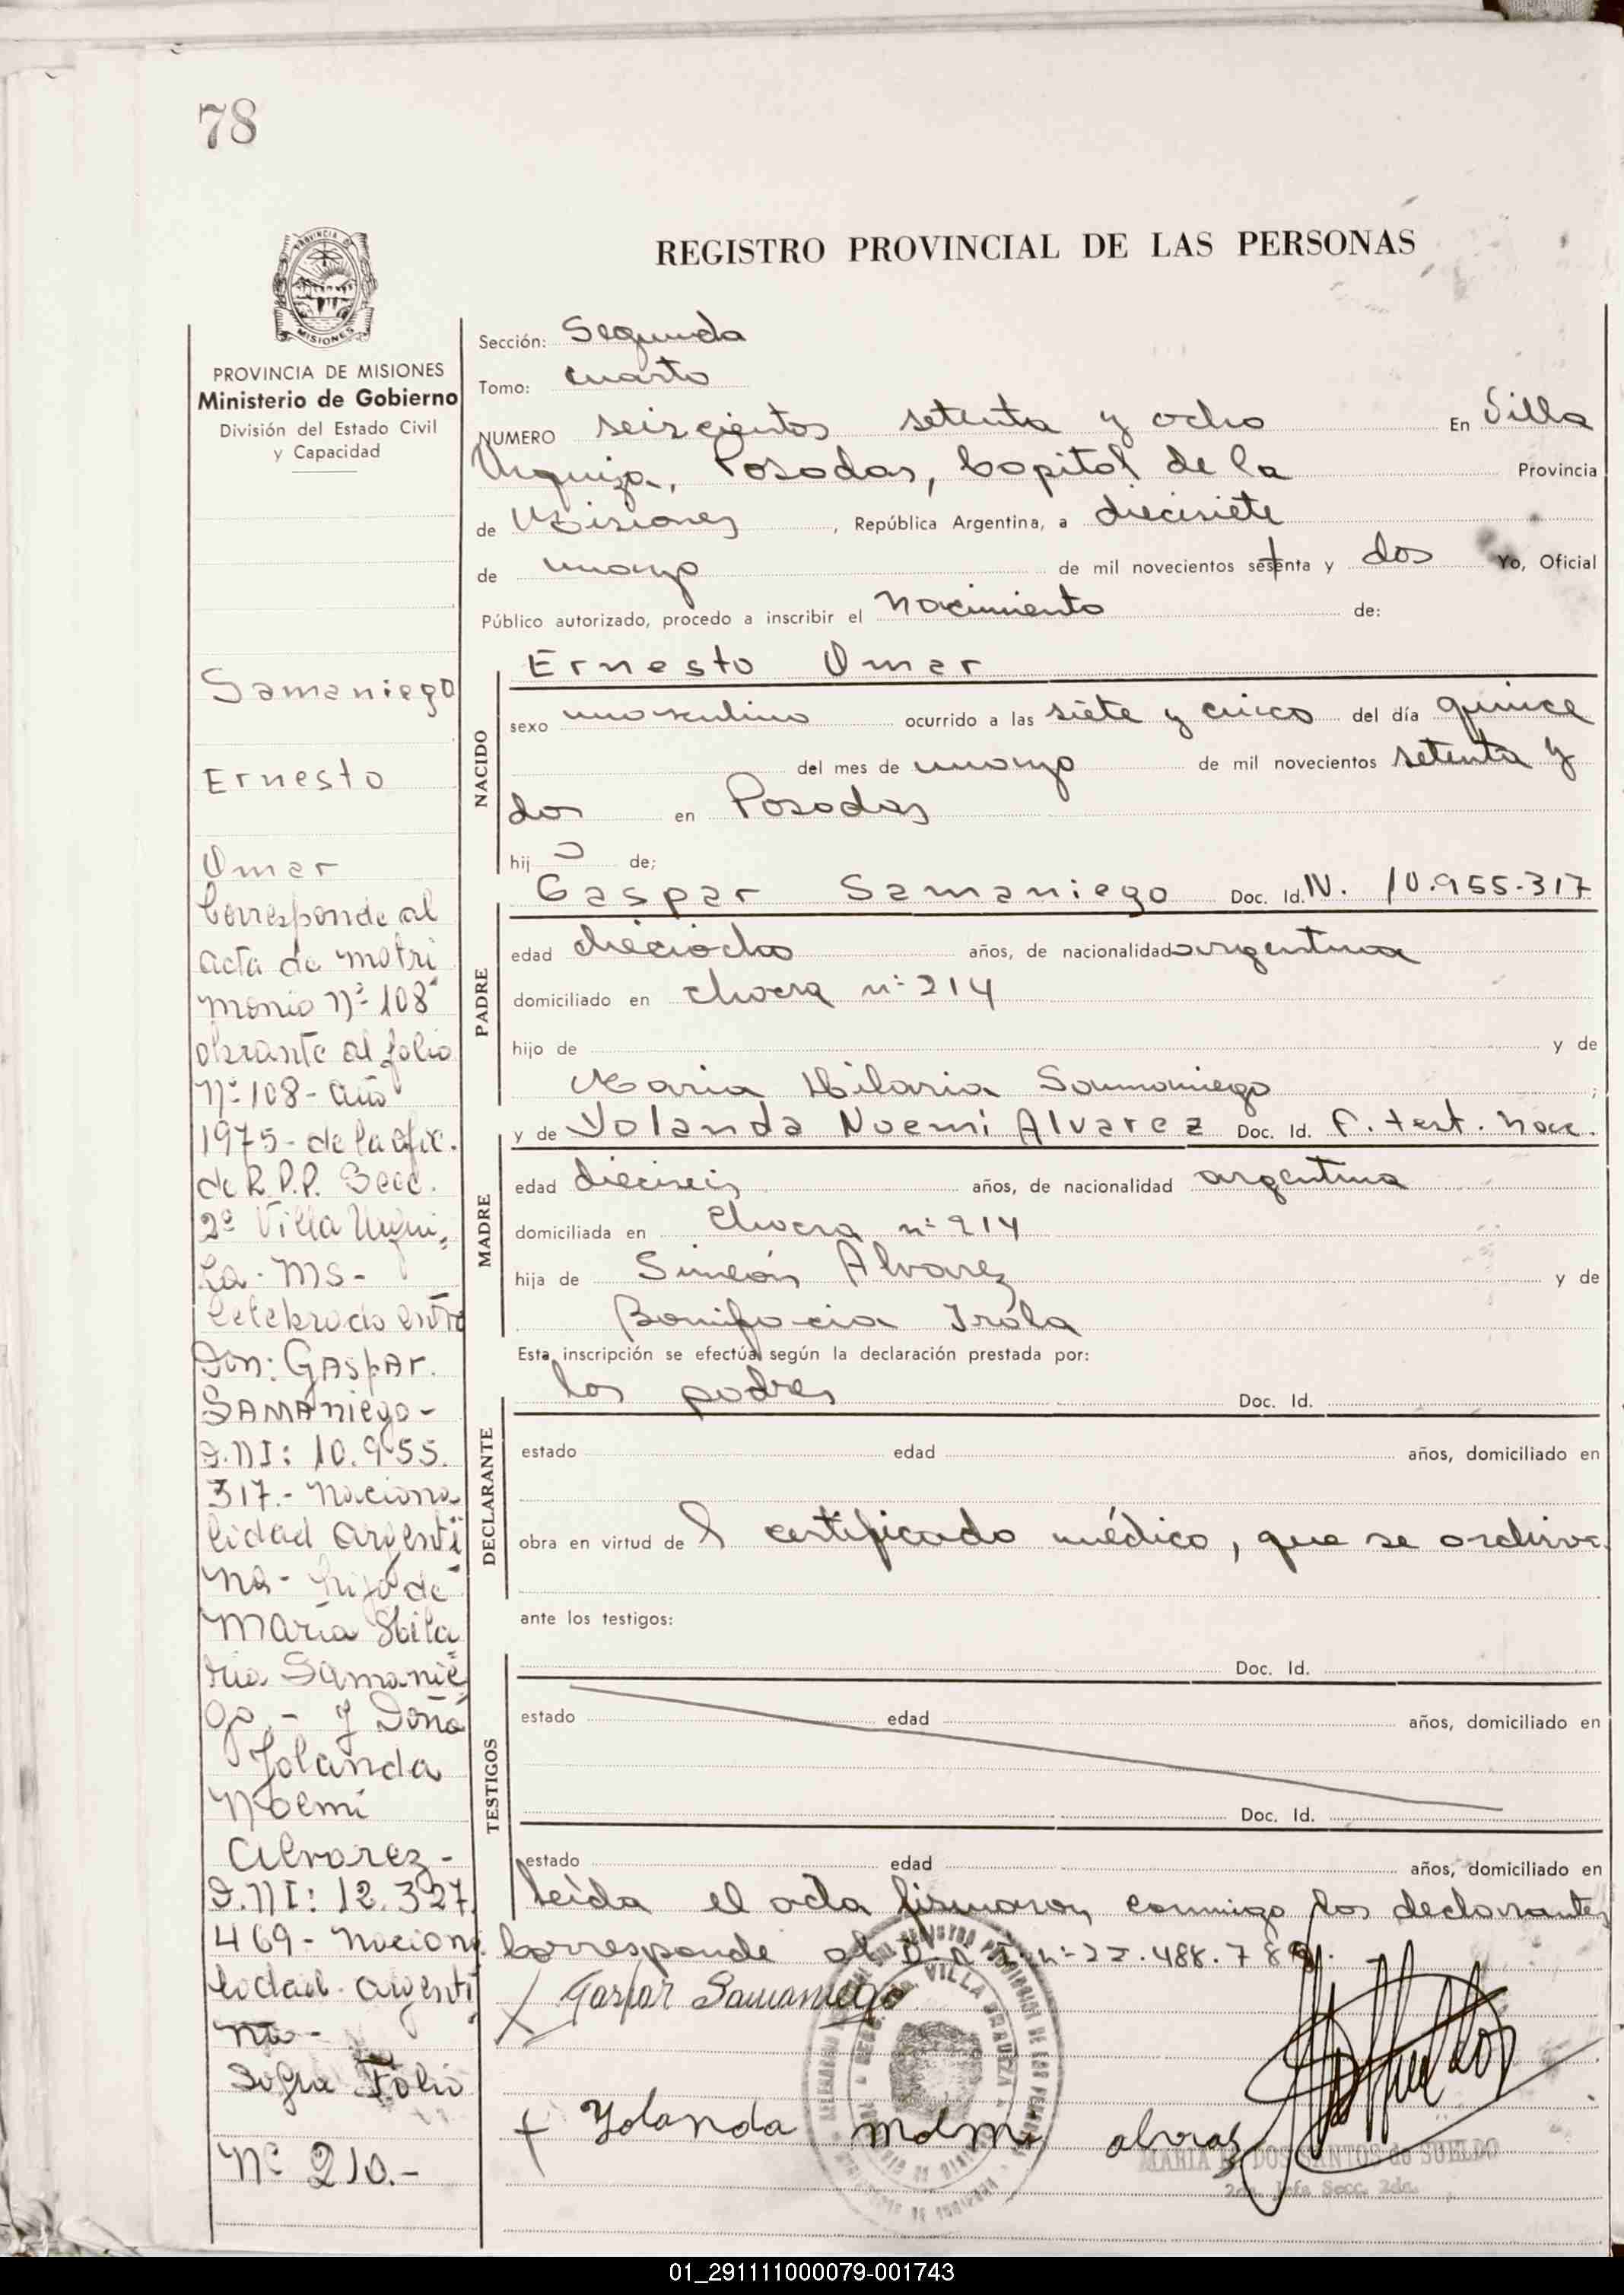 78
REGISTRO PROVINCIAL DE LAS PERSONAS
PROVINCIA DE
MISIONES
PROVINCIA DE MISIONES
Ministerio de Gobierno
División del Estado Civil
y Capacidad
Samaniego
Ernesto
Omar
Corresponde al
acta de matri
monio Nº 108
obrante al folio
Nº 108 - año
1975 - de la ofic.
de R.P.P. Secc.
2º Villa Urqui,
za. Ms -
Celebrado entre
Don: GASpAr.
SAMAniego -
D.NI: 10.955.
317.- Naciona
lidad argenti
na - hijo de
María Hila
ria Samanie
go - y Doña
Yolanda
Noemí
Alvarez -
D.NI: 12.327.
469 - Naciona
lidad argenti
na -
Folio
Nº 210.-
Sección: Segunda
Tomo: cuarto
NUMERO seiscientos setenta y ocho En Villa
Urquiza, Posadas, Capital de la Provincia
de Misiones, República Argentina, a diecisiete
de mayo de mil novecientos setenta y dos Yo, Oficial
Público autorizado, procedo a inscribir el nacimiento de:
NACIDO
Ernesto Omar
sexo masculino ocurrido a las siete y cinco del día quince
del mes de mayo de mil novecientos setenta y
dos en Posadas
hij o de;
PADRE
Gaspar Samaniego Doc. Id. N. 10.955.317
edad dieciocho años, de nacionalidad argentina
domiciliado en chacra nº 214
hijo de y de
Maria Hilaria Samaniego ;
MADRE
y de Yolanda Noemi Alvarez Doc. Id. F. test. nac.
edad dieciseis años, de nacionalidad argentina
domiciliada en chacra nº 214
hija de Simeón Alvarez y de
Bonifacia Irala
Esta inscripción se efectúa según la declaración prestada por:
DECLARANTE
los padres Doc. Id.
estado edad años, domiciliado en
obra en virtud de l certificado médico, que se archiva.
ante los testigos:
TESTIGOS
Doc. Id.
estado edad años, domiciliado en
Doc. Id.
estado edad años, domiciliado en
leída el acta firmaron conmigo los declarantes
Corresponde al D.N.I. nº 22.488.789.
Gaspar Samaniego
Yolanda alvarez
VILLA URQUIZA
MARIA DOS SANTOS de SUELDO
2da. Jefa Secc. 2da.
01_291111000079-001743